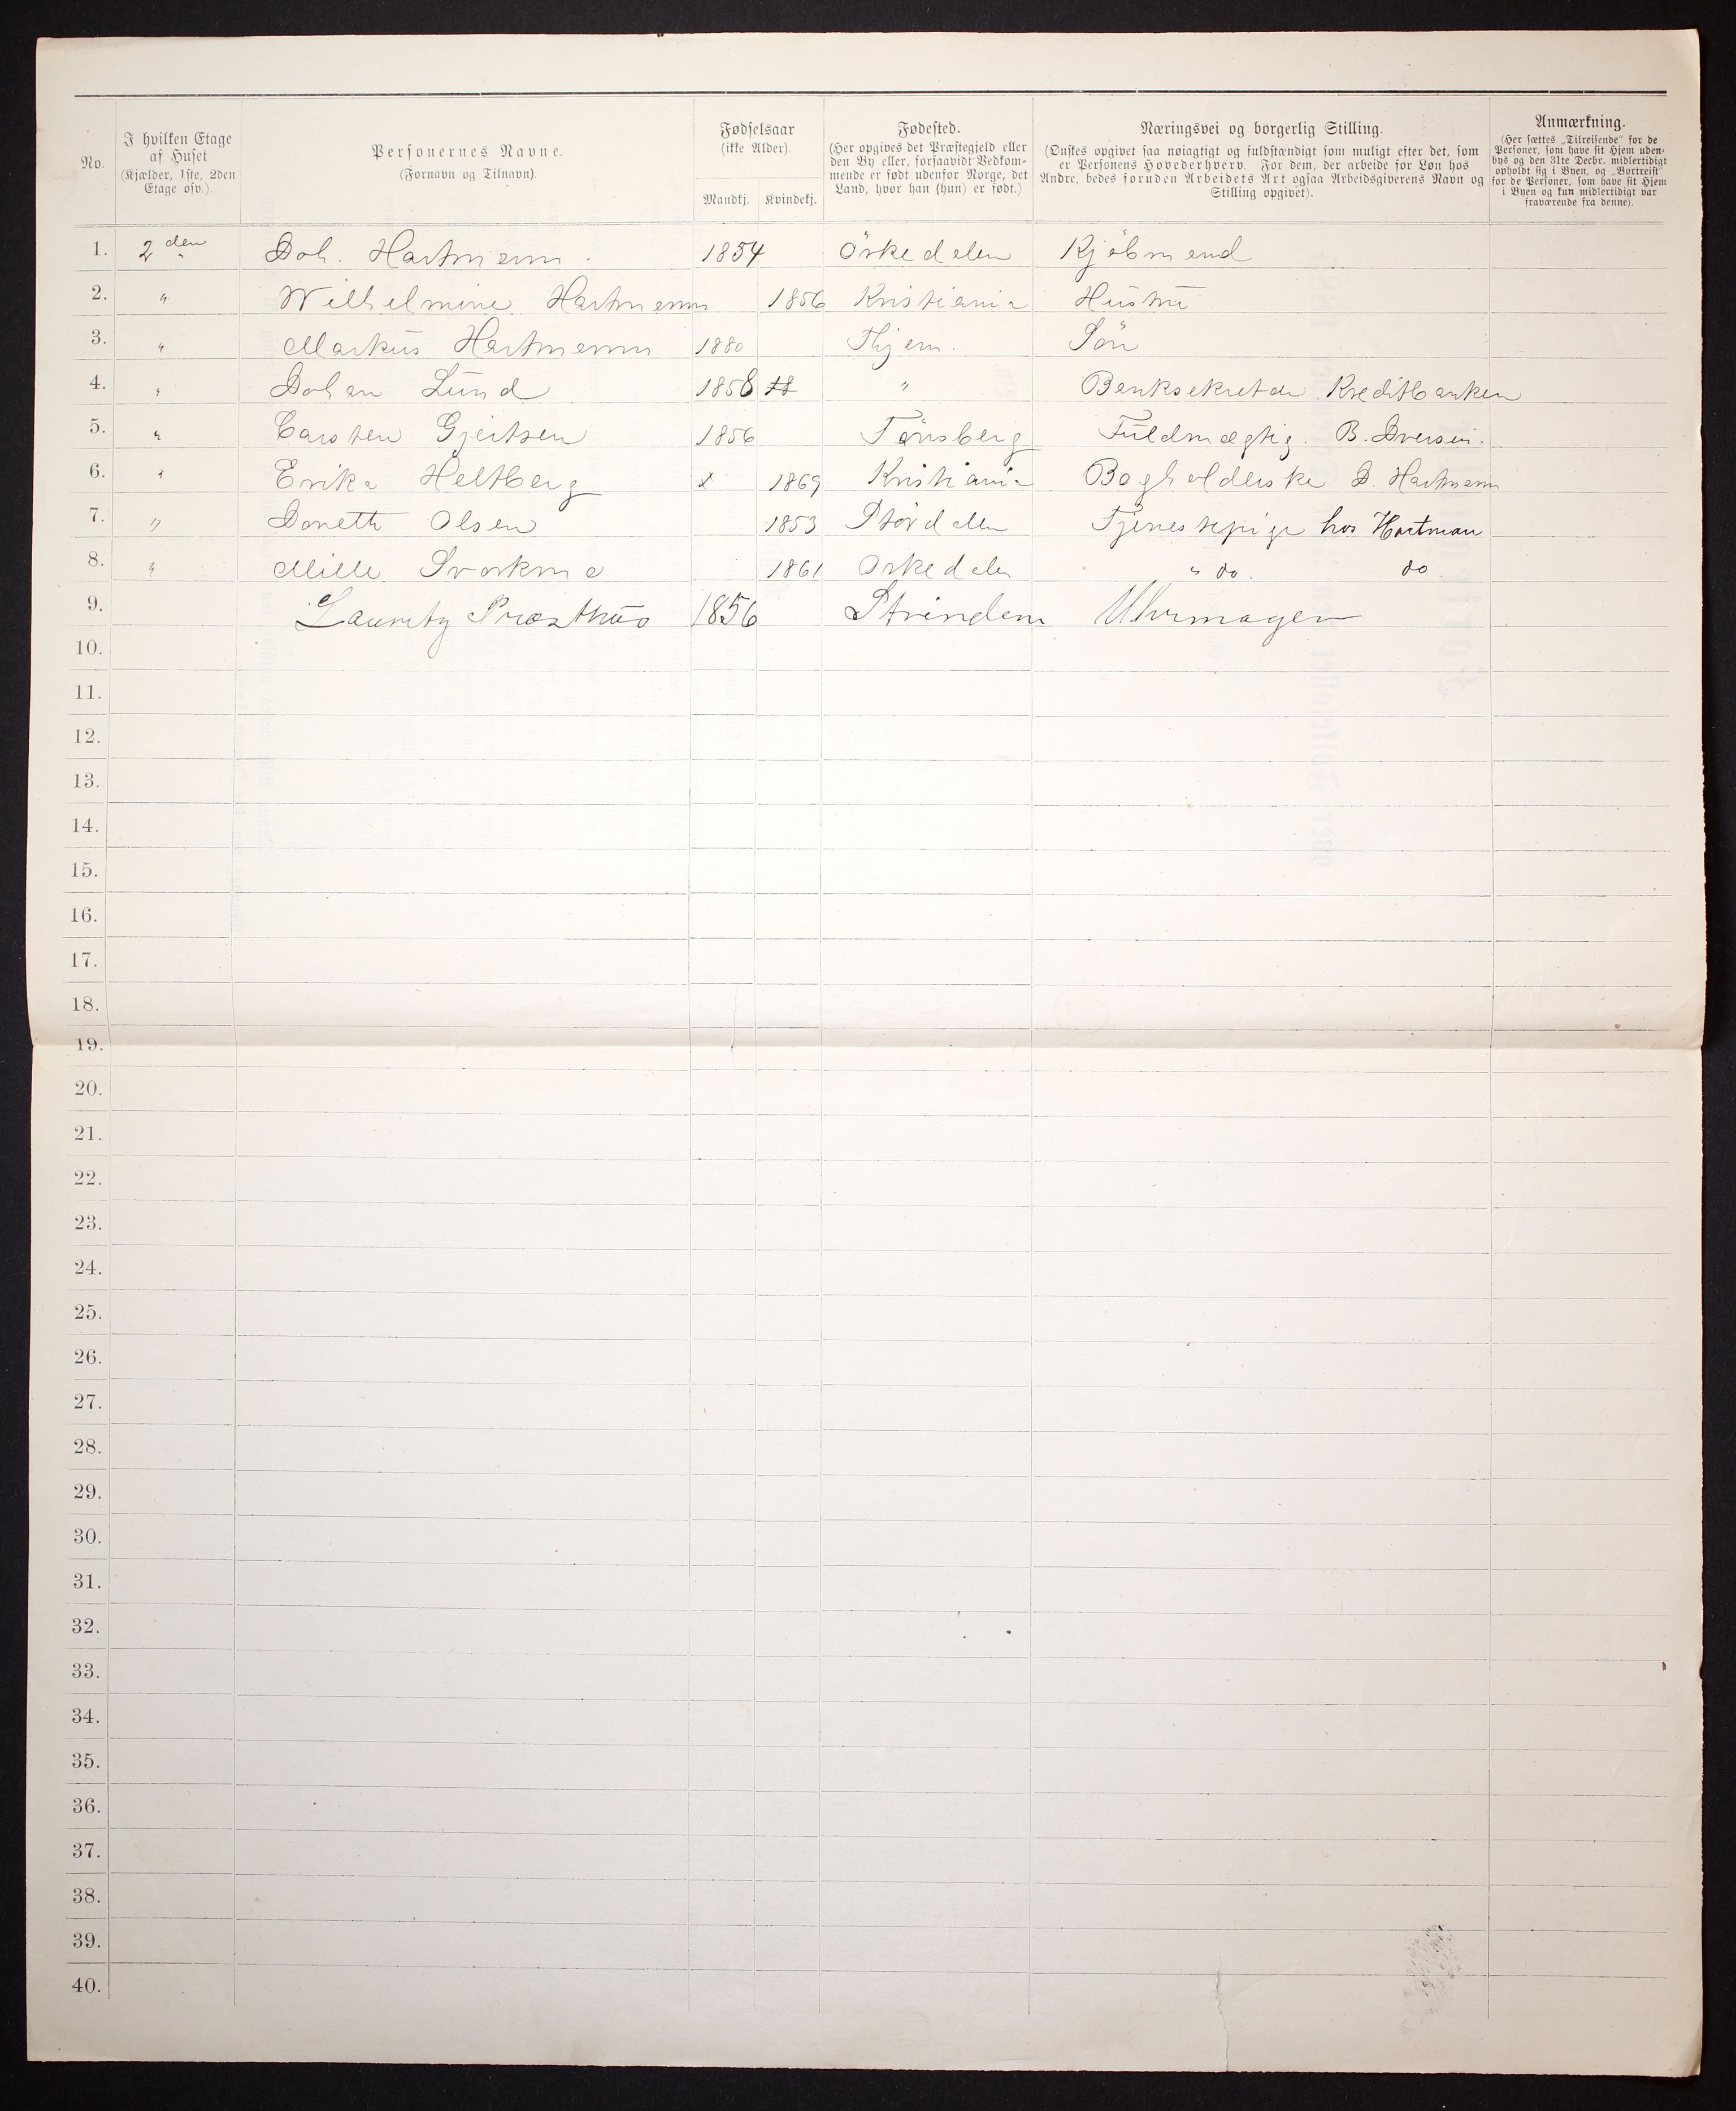 No.
I hvilken Etage af Huset (Kjælder, 1ste, 2den Etage osv.).
Personernes Navne. (Fornavn og Tilnavn).
Fødselsaar (ikke Alder). Mandkj. Kvindekj.
Fødested. (Her opgives det Præstegjeld eller den By eller, forsaavidt Bedkommende er født udenfor Norge, det Land, hvor han (hun) er født.)
Næringsvei og borgerlig Stilling. (Ønskes opgivet saa nøiagtigt og fuldstændigt som muligt efter det, som er Personens Hovederhverv. For dem, der arbeide for Løn hos Andre, bedes foruden Arbeidets Art ogsaa Arbeidsgiverens Navn og Stilling opgivet).
Anmærkning. (Her sættes „Tilreisende" for de Personer, som have sit Hjem udenbys og den 31te Decbr. midlertidigt opholdt sig i Byen, og „Bortreist" for de Personer, som have sit Hjem i Byen og kun midlertidigt var fraværende fra denne).
1. 2den Joh. Hartmann. 1854 Örkedalen Kjöbmand
2. " Wilhelmine Hartmann 1856 Kristiania Hustru
3. " Markus Hartmann 1880 Thjem. Sön
4. " Johan Lund 1858 " Banksekretær Kreditbanken
5. " Carsten Gjertsen 1856 Tönsberg Fuldmægtig. B. Iversen.
6. " Erika Heltberg x 1869 Kristiania Bogholderske J. Hartmann
7. " Olsen 1853 Stördalen Tjenestepige hos Hartman
8. " Mille 1861 Orkedalen " do. do
9. Lauritz Præsthus 1856 Strinden Uhrmager
10.
11.
12.
13.
14.
15.
16.
17.
18.
19.
20.
21.
22.
23.
24.
25.
26.
27.
28.
29.
30.
31.
32.
33.
34.
35.
36.
37.
38.
39.
40.